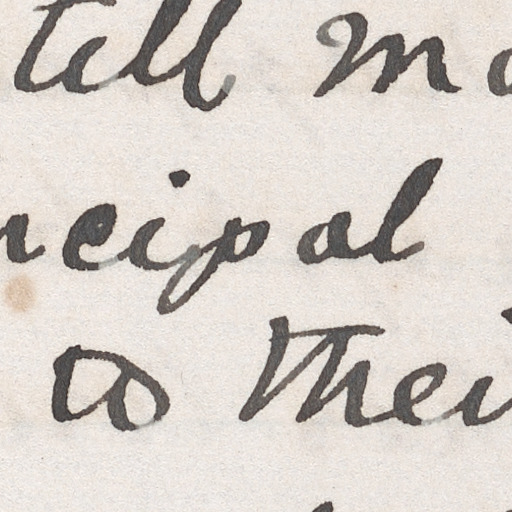 tell m
ncipal
to thei